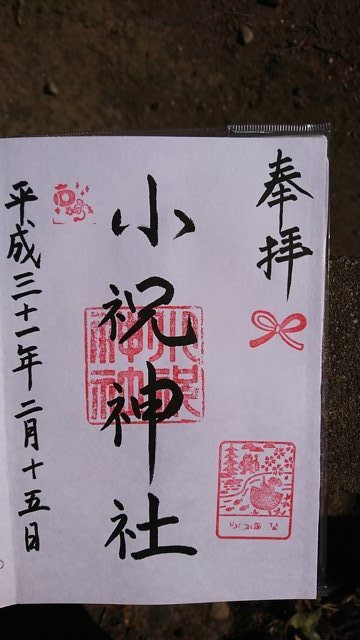 奉拝
小祝神社
平成三十一年二月十五日